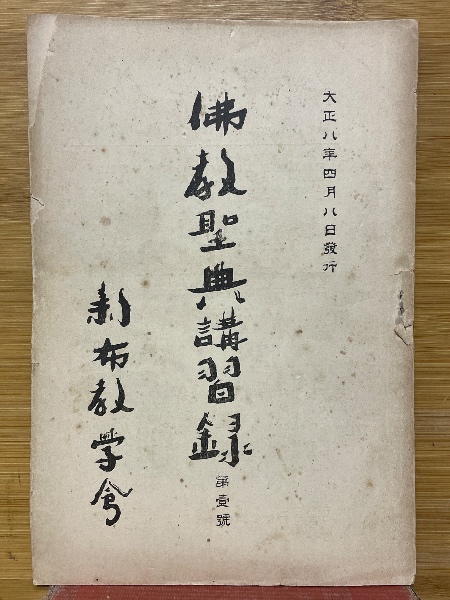 大正八年四月八日發行
佛教聖典講習録
第壹號
新布教学會